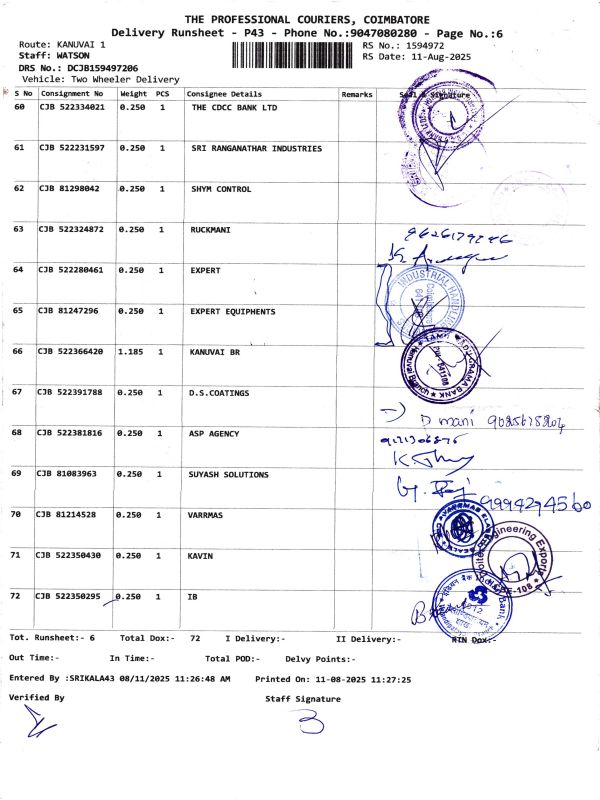 THE PROFESSIONAL COURIERS, COIMBATORE
Delivery Runsheet - P43 - Phone No.:9047080280 - Page No.:6
Route: KANUVAI 1
RS No.: 1594972
Staff: WATSON
RS Date: 11-Aug-2025
DRS No.: DCJB159497206
Vehicle: Two Wheeler Delivery
S No Consignment No Weight PCS Consignee Details Remarks Seal & Signature
60 CJB 522334021 0.250 1 THE CDCC BANK LTD
61 CJB 522231597 0.250 1 SRI RANGANATHAR INDUSTRIES
62 CJB 81298042 0.250 1 SHYM CONTROL
63 CJB 522324872 0.250 1 RUCKMANI
64 CJB 522280461 0.250 1 EXPERT
INDUSTRIAL HANDLING
65 CJB 81247296 0.250 1 EXPERT EQUIPHENTS
66 CJB 522366420 1.185 1 KANUVAI BR
GRAMA BANK
67 CJB 522391788 0.250 1 D.S.COATINGS
D mani
68 CJB 522381816 0.250 1 ASP AGENCY
69 CJB 81083963 0.250 1 SUYASH SOLUTIONS
9994294560
70 CJB 81214528 0.250 1 VARRMAS
71 CJB 522350430 0.250 1 KAVIN
Engineering Exports
72 CJB 522350295 0.250 1 IB
Tot. Runsheet:- 6 Total Dox:- 72 I Delivery:- II Delivery:- RTN Dox:-
Out Time:- In Time:- Total POD:- Delvy Points:-
Entered By :SRIKALA43 08/11/2025 11:26:48 AM Printed On: 11-08-2025 11:27:25
Verified By Staff Signature